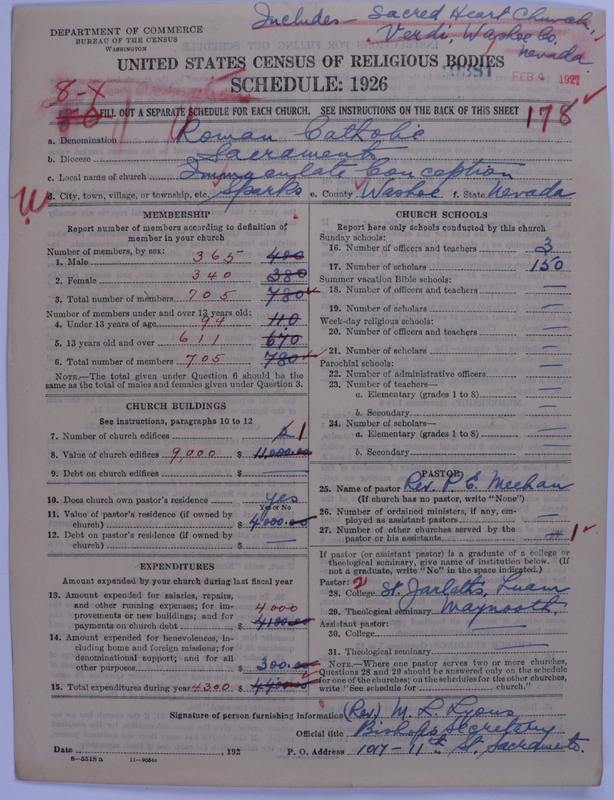 DEPARTMENT OF COMMERCE
BUREAU OF THE CENSUS
WASHINGTON
Includes - Sacred Heart Church,
Verdi, Washoe Co.
Nevada
UNITED STATES CENSUS OF RELIGIOUS BODIES
SCHEDULE: 1926
FEB 4 1927
8-8
FILL OUT A SEPARATE SCHEDULE FOR EACH CHURCH. SEE INSTRUCTIONS ON THE BACK OF THIS SHEET
178
a. Denomination Roman Catholic
b. Diocese Sacramento
c. Local name of church Immaculate Conception
d. City, town, village, or township, etc. Sparks e. County Washoe f. State Nevada
MEMBERSHIP
Report number of members according to definition of
member in your church
Number of members, by sex:
1. Male 365 400
2. Female 340 380
3. Total number of members 705 780
Number of members under and over 13 years old:
4. Under 13 years of age 94 110
5. 13 years old and over 611 670
6. Total number of members 705 780
NOTE.—The total given under Question 6 should be the
same as the total of males and females given under Question 3.
CHURCH BUILDINGS
See instructions, paragraphs 10 to 12
7. Number of church edifices 2 1
8. Value of church edifices 9,000 $ 11,000.00
9. Debt on church edifices $ —
10. Does church own pastor's residence yes
Yes or No
11. Value of pastor's residence (if owned by
church) $ 4000.00
12. Debt on pastor's residence (if owned by
church) $ —
EXPENDITURES
Amount expended by your church during last fiscal year
13. Amount expended for salaries, repairs,
and other running expenses; for im-
provements or new buildings; and for
payments on church debt $ 4000 4100.00
14. Amount expended for benevolences, in-
cluding home and foreign missions; for
denominational support; and for all
other purposes $ 300.00
15. Total expenditures during year 4300 $ 4400.00
CHURCH SCHOOLS
Report here only schools conducted by this church
Sunday schools:
16. Number of officers and teachers 3
17. Number of scholars 150
Summer vacation Bible schools:
18. Number of officers and teachers —
19. Number of scholars —
Week-day religious schools:
20. Number of officers and teachers —
21. Number of scholars —
Parochial schools:
22. Number of administrative officers —
23. Number of teachers—
a. Elementary (grades 1 to 8) —
b. Secondary —
24. Number of scholars—
a. Elementary (grades 1 to 8) —
b. Secondary —
PASTOR
25. Name of pastor Rev. P. E. Meehan
(If church has no pastor, write "None")
26. Number of ordained ministers, if any, em-
ployed as assistant pastors —
27. Number of other churches served by the
pastor or his assistants 1
If pastor (or assistant pastor) is a graduate of a college or
theological seminary, give name of institution below. (If
not a graduate, write "No" in the space indicated.)
Pastor: 2
28. College St. Jarlaths, Tuam
29. Theological seminary Maynooth
Assistant pastor:
30. College —
31. Theological seminary —
NOTE.—Where one pastor serves two or more churches,
Questions 28 and 29 should be answered only on the schedule
for one of the churches; on the schedules for the other churches,
write "See schedule for ............ church."
Signature of person furnishing information (Rev) M. L. Lyons
Official title Bishop's Secretary
Date ............, 192 P. O. Address 1017-11th St. Sacramento.
8—5518 a